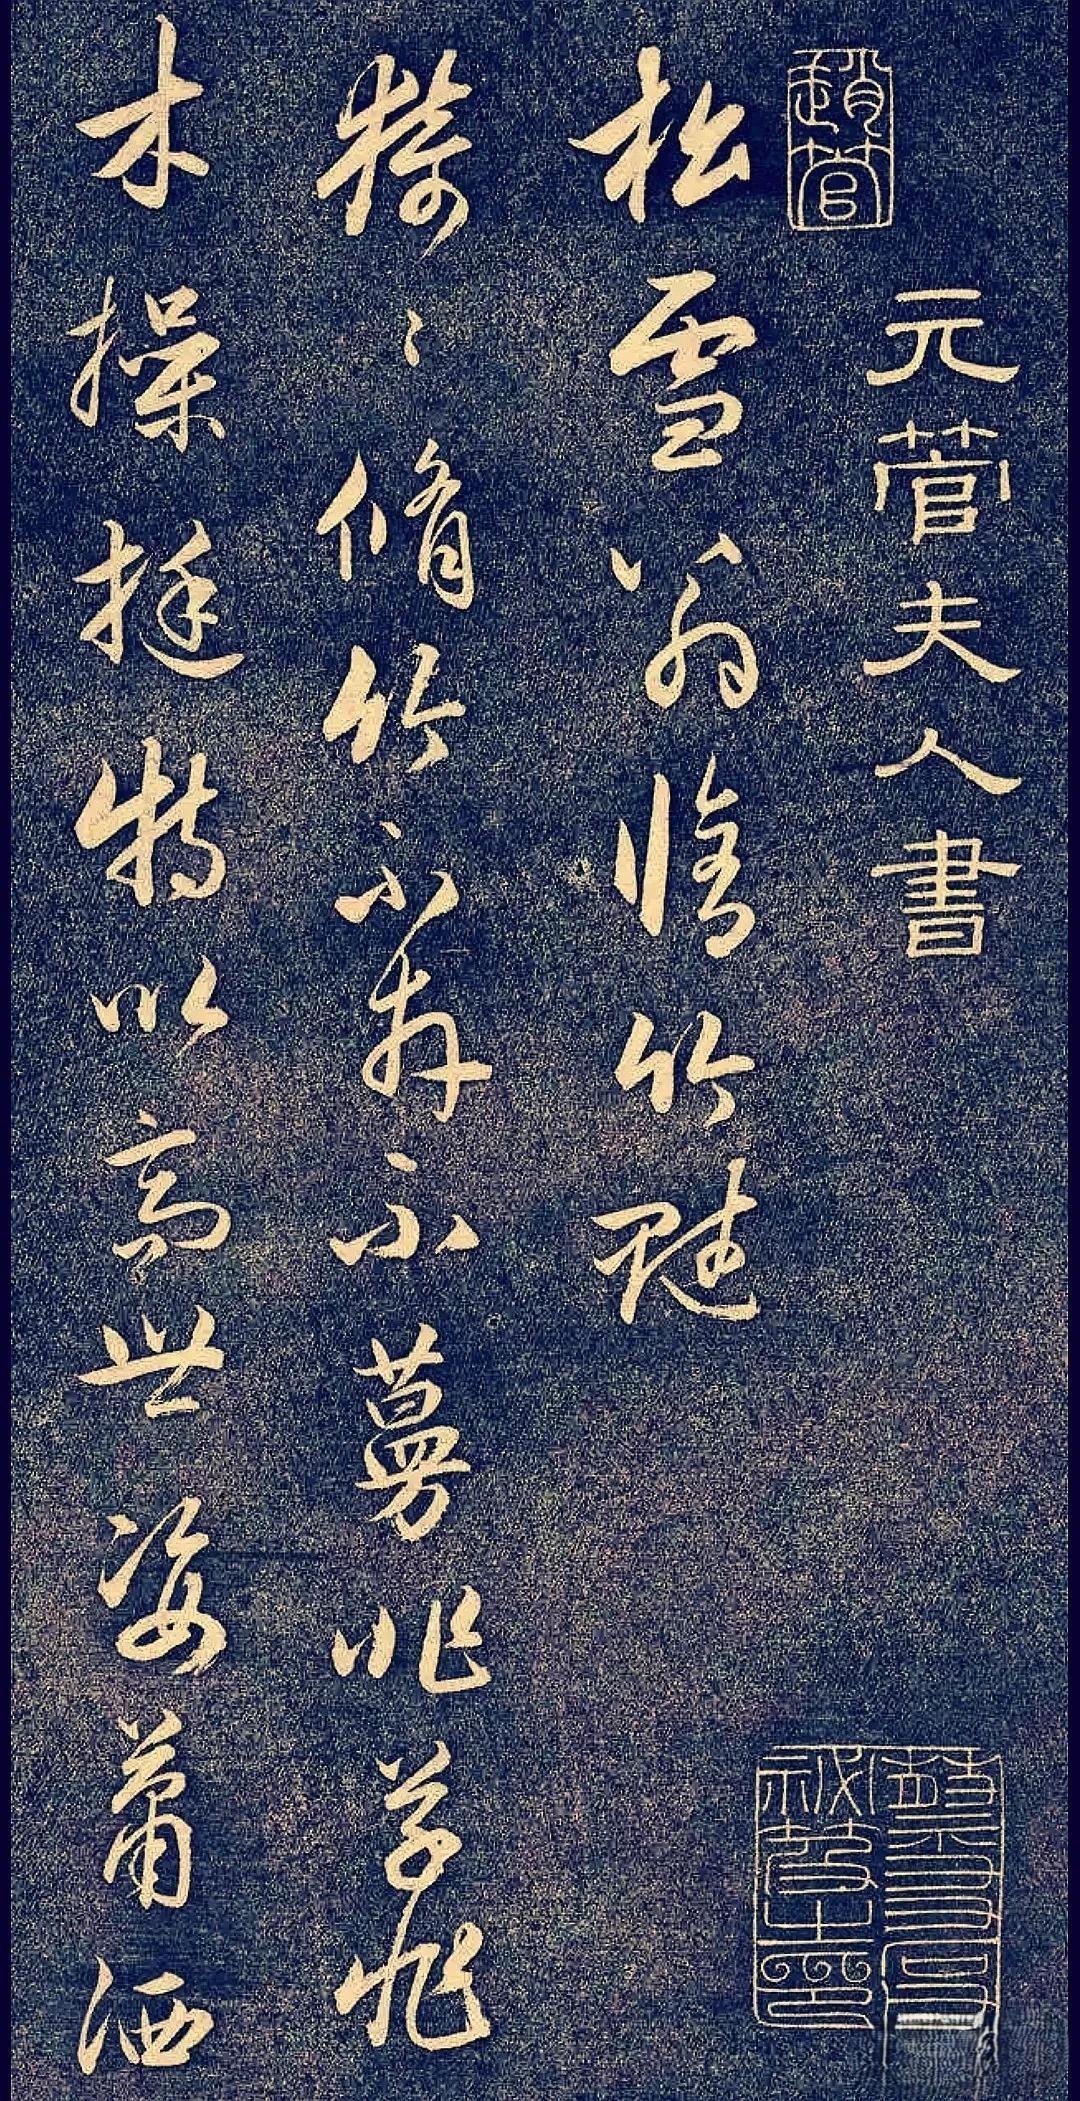 趙管
元管夫人書
松雪翁脩竹賦
猗〻脩竹不卉不蔓非草非
木操挺特以高世姿蕭洒